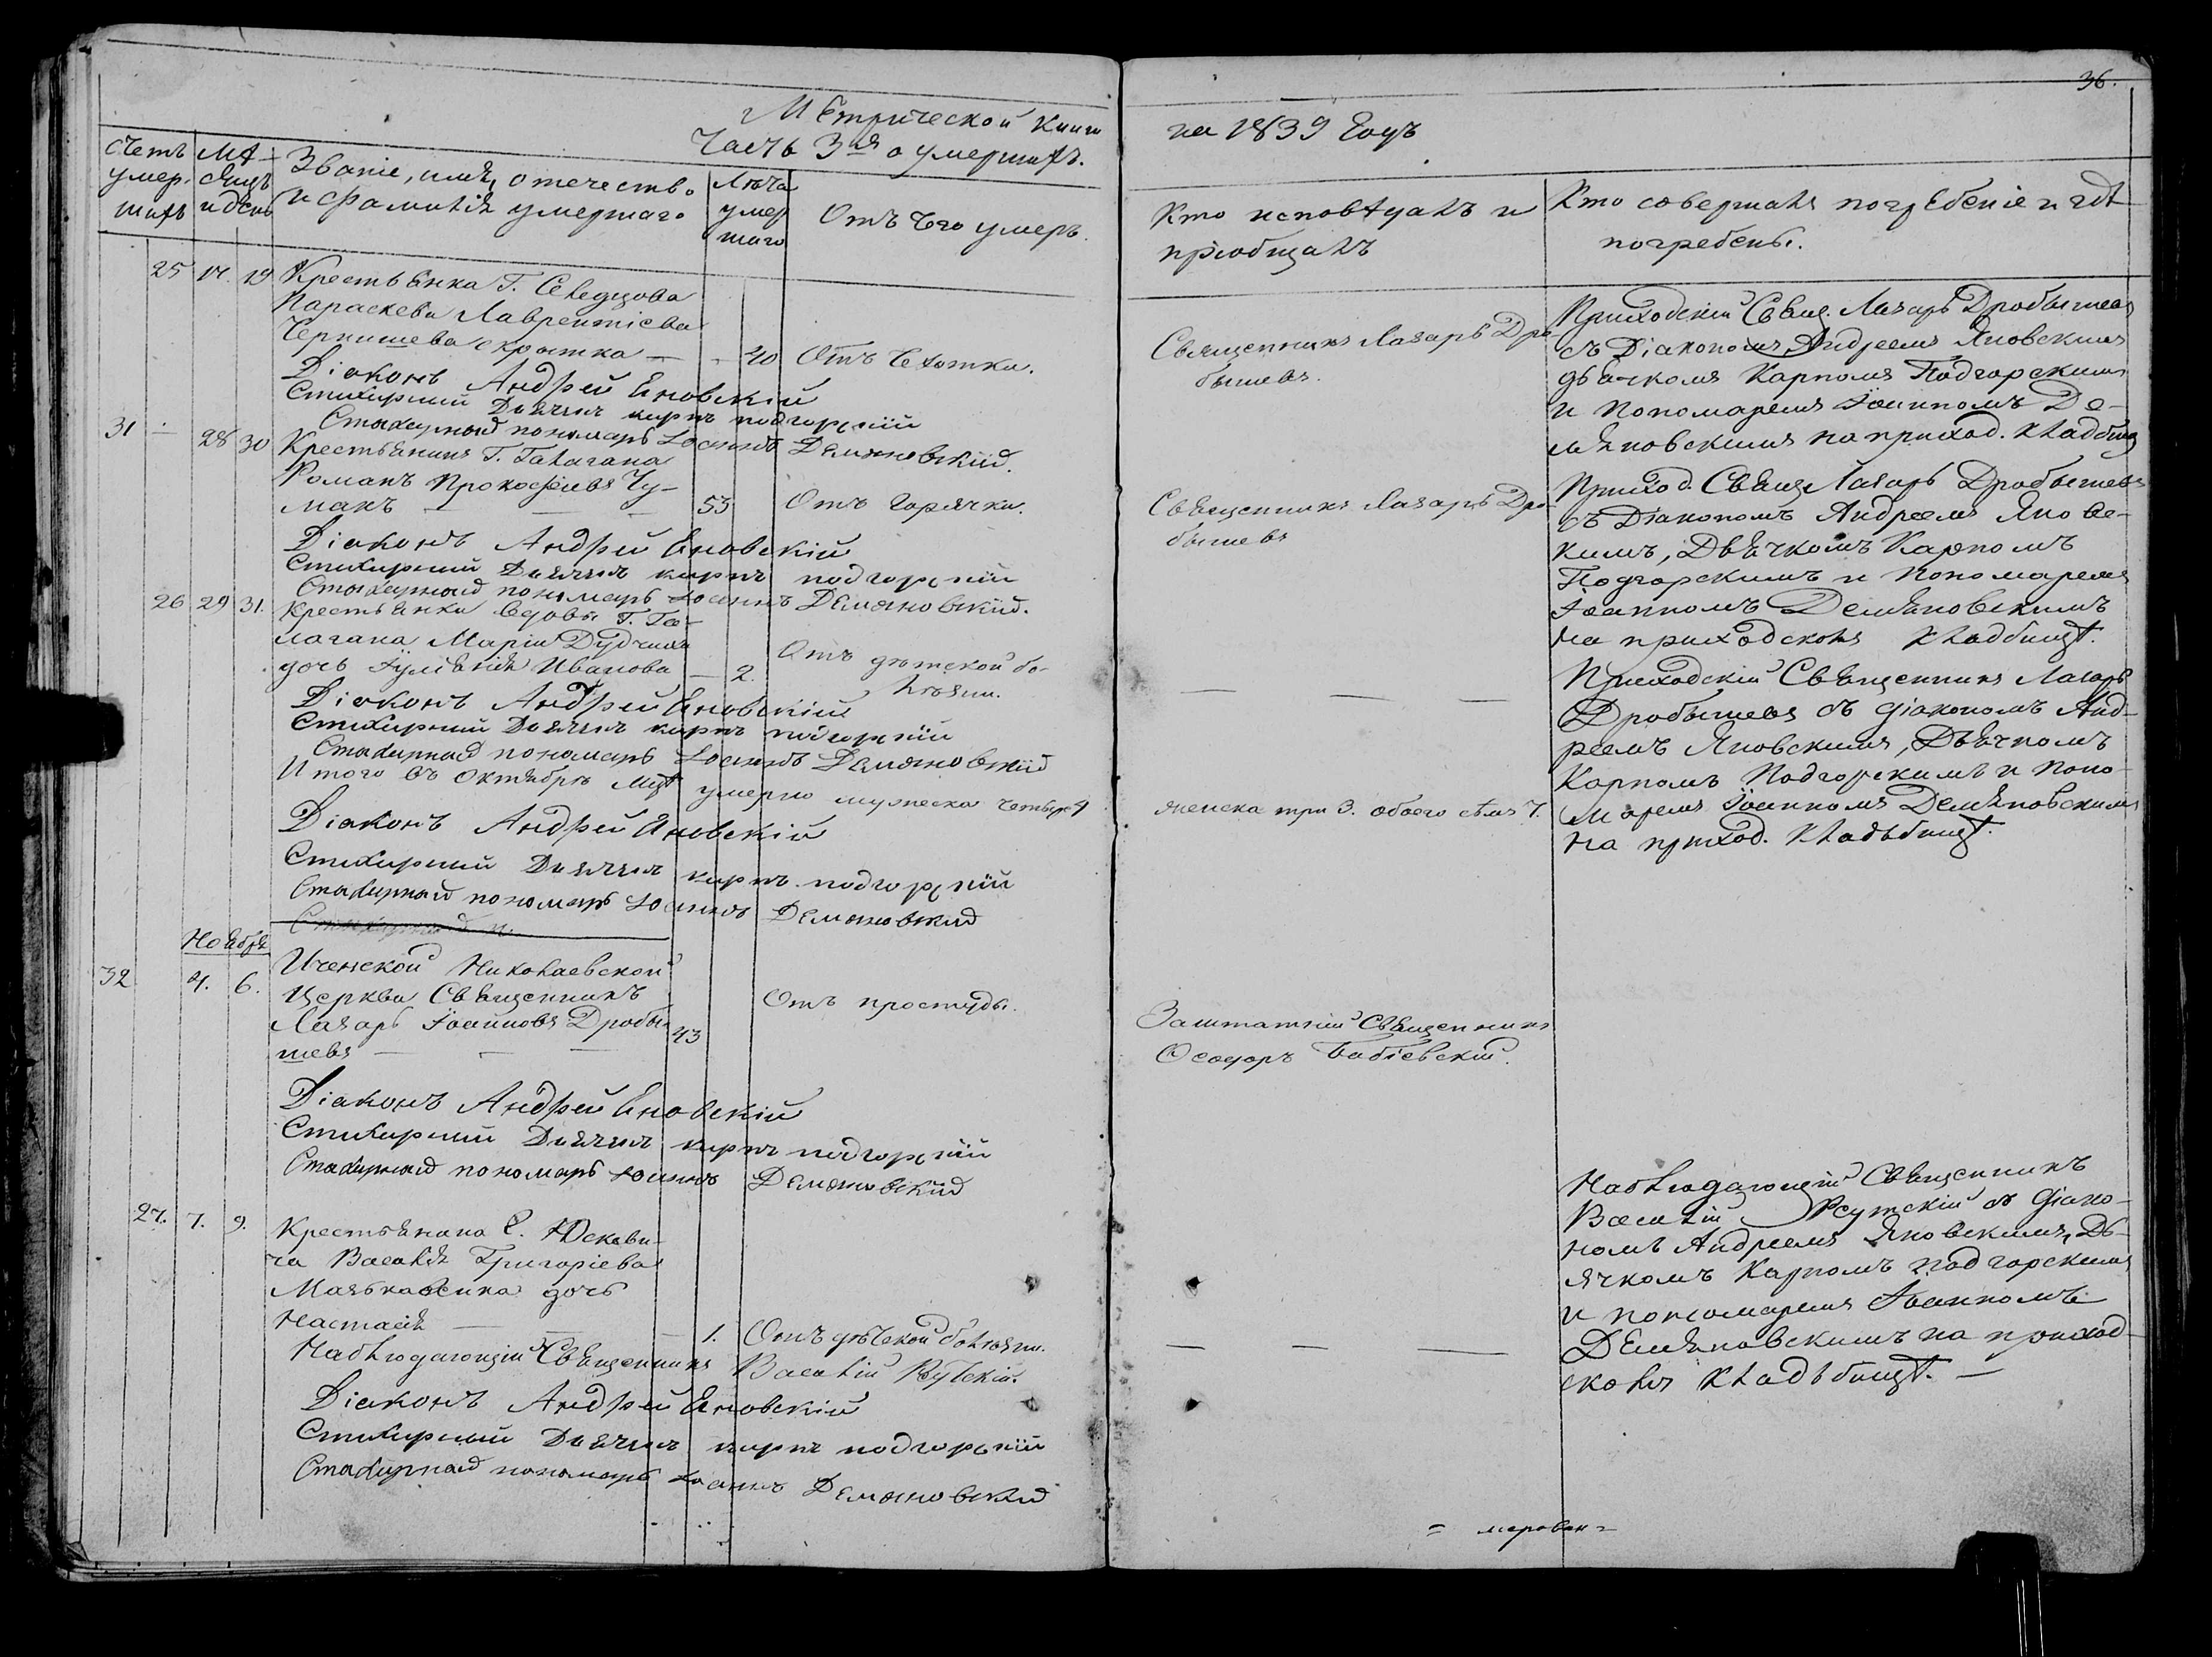 36.
Метрической Книги
Часть 3ая о умершихъ.
на 1839 Годъ
Счетъ умер. шихъ
Мѣ- сяцъ и день
Званіе, имя, отечество
и фамилія умершаго
Лѣта умер шаго
Отъ чего умеръ.
Кто исповѣдалъ и
пріобщалъ
Кто совершалъ погребеніе и гдѣ
погребены.
25 17. 19 Крестьянка Г. Селецкова
Параскева Лаврентіева
Чернишева
40 Отъ чахотки.
Діаконъ Андрей Яновскій
Стихирный Дьячокъ Карпъ Подгорскій
Стихирный пономарь Іоаннъ Демяновскій.
Священникъ Лазарь Дро-
бышевъ.
Приходскій Свящ. Лазарь Дробышевъ
съ Діакономъ Андреемъ Яновскимъ
дьячкомъ Карпомъ Подгорскимъ
и Пономаремъ Іоанномъ Де-
мяновскимъ на приход. кладбищѣ
31 - 28 30 Крестьянинъ Г. Галагана
Романъ Прокофіевъ Чу-
макъ — — — 53 Отъ горячки.
Діаконъ Андрей Яновскій
Стихирный Дьячокъ Карпъ Подгорскій
Стихирный пономарь Іоаннъ Демяновскій.
Священникъ Лазарь Дро-
бышевъ
Приход. Свящ. Лазарь Дробышевъ
съ Діакономъ Андреемъ Яновс-
кимъ, Дьячкомъ Карпомъ
Подгорскимъ и Пономаремъ
Іоанномъ Демяновскимъ
на приходскомъ кладбищѣ.
26 29 31. Крестьянки вдовы Г. Га-
лагана Маріи Дудчихи
дочь Іуліянія Иванова — 2.
Отъ дѣтской бо-
лѣзни.
Діаконъ Андрей Яновскій
Стихирный Дьячокъ Карпъ Подгорскій
Стихирный пономарь Іоаннъ Демяновскій
— — —
Приходскій Священникъ Лазарь
Дробышевъ съ діакономъ Анд-
реемъ Яновскимъ, Дьячкомъ
Карпомъ Подгорскимъ и Поно-
маремъ Іоанномъ Демяновскимъ
на приход. кладьбищѣ.
Итого въ Октябрѣ мцѣ умерло мужеска четыре 4
женска три 3. обоего семь 7.
Діаконъ Андрей Яновскій
Стихирный Дьячокъ Карпъ Подгорскій
Стихирный пономарь Іоаннъ Демяновскій
Ноябрь
32 4. 6. Иченской Николаевской
Церкви Священникъ
Лазарь Іоанновъ Дробы-
шевъ — — — 43
Отъ простуды.
Діаконъ Андрей Яновскій
Стихирный Дьячокъ Карпъ Подгорскій
Стихирный пономарь Іоаннъ Демяновскій
Заштатній Священникъ
Ѳеодоръ Бабіевскій.
27. 7. 9. Крестьянина Юскеви-
ча Василія Григоріева
дочь
Настасія — — — 1. Отъ дѣтской болѣзни.
Наблюдающій Священникъ Василій Рутскій.
Діаконъ Андрей Яновскій
Стихирный Дьячокъ Карпъ Подгорскій
Стихирный пономарь Іоаннъ Демяновскій
— — —
Наблюдающій Священникъ
Василій Рутскій съ діако-
номъ Андреемъ Яновскимъ, Дь-
ячкомъ Карпомъ Подгорскимъ
и пономаремъ Іоанномъ
Демяновскимъ на приход-
скомъ кладьбищѣ. —